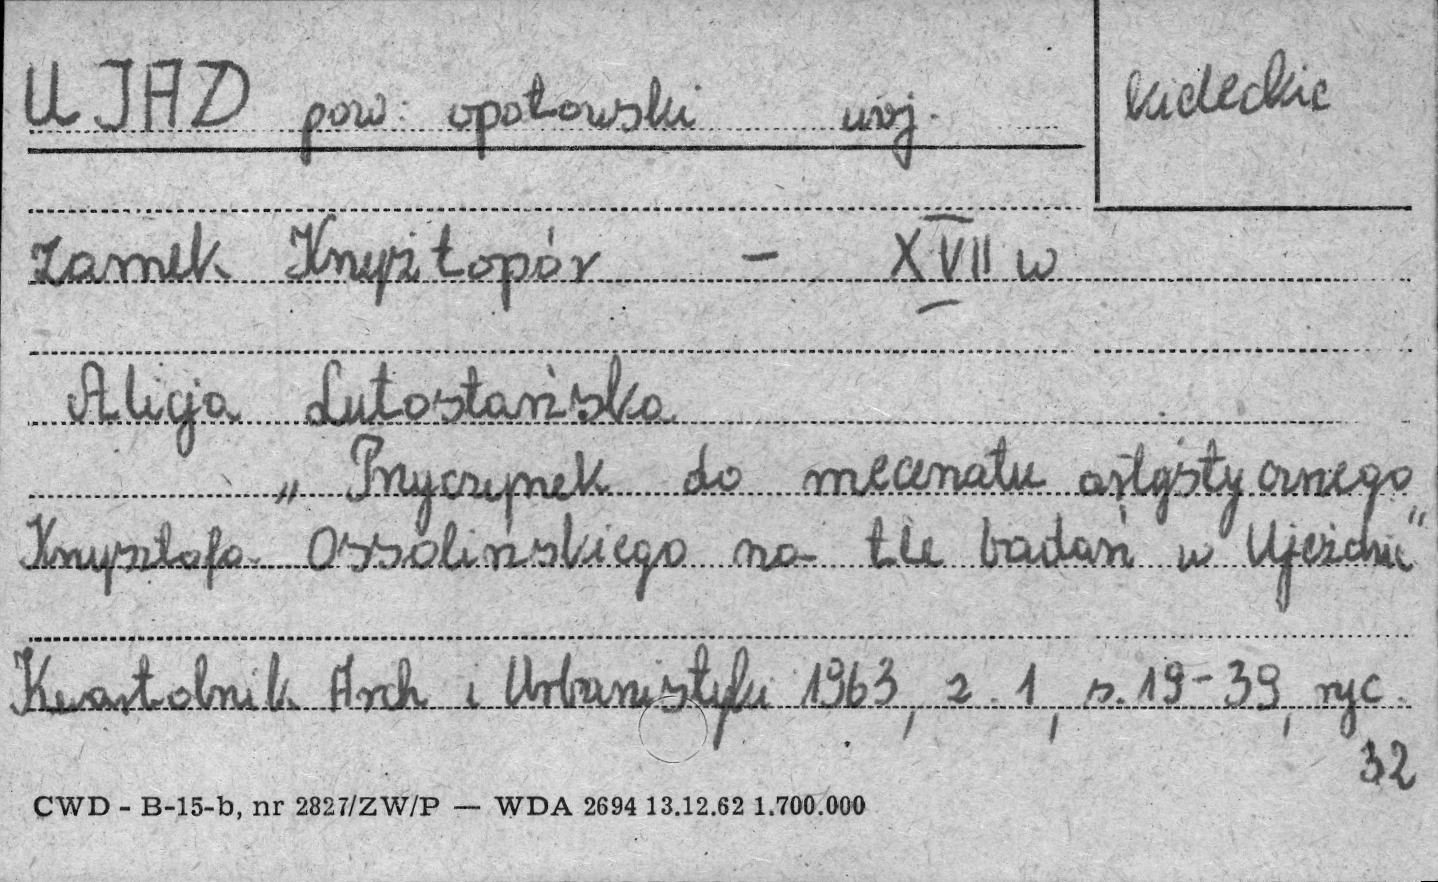 UJAZD pow. opatowski woj. kieleckie
Zamek Krzyżtopór - XVII w
Alicja Lutostańska
„Przyczynek do mecenatu artystycznego
Krzysztofa Ossolińskiego na tle badań w Ujeździe"
Kwartalnik Arch i Urbanistyki 1963, z. 1, s. 19-39, ryc.
32
CWD - B-15-b, nr 2827/ZW/P — WDA 2694 13.12.62 1.700.000